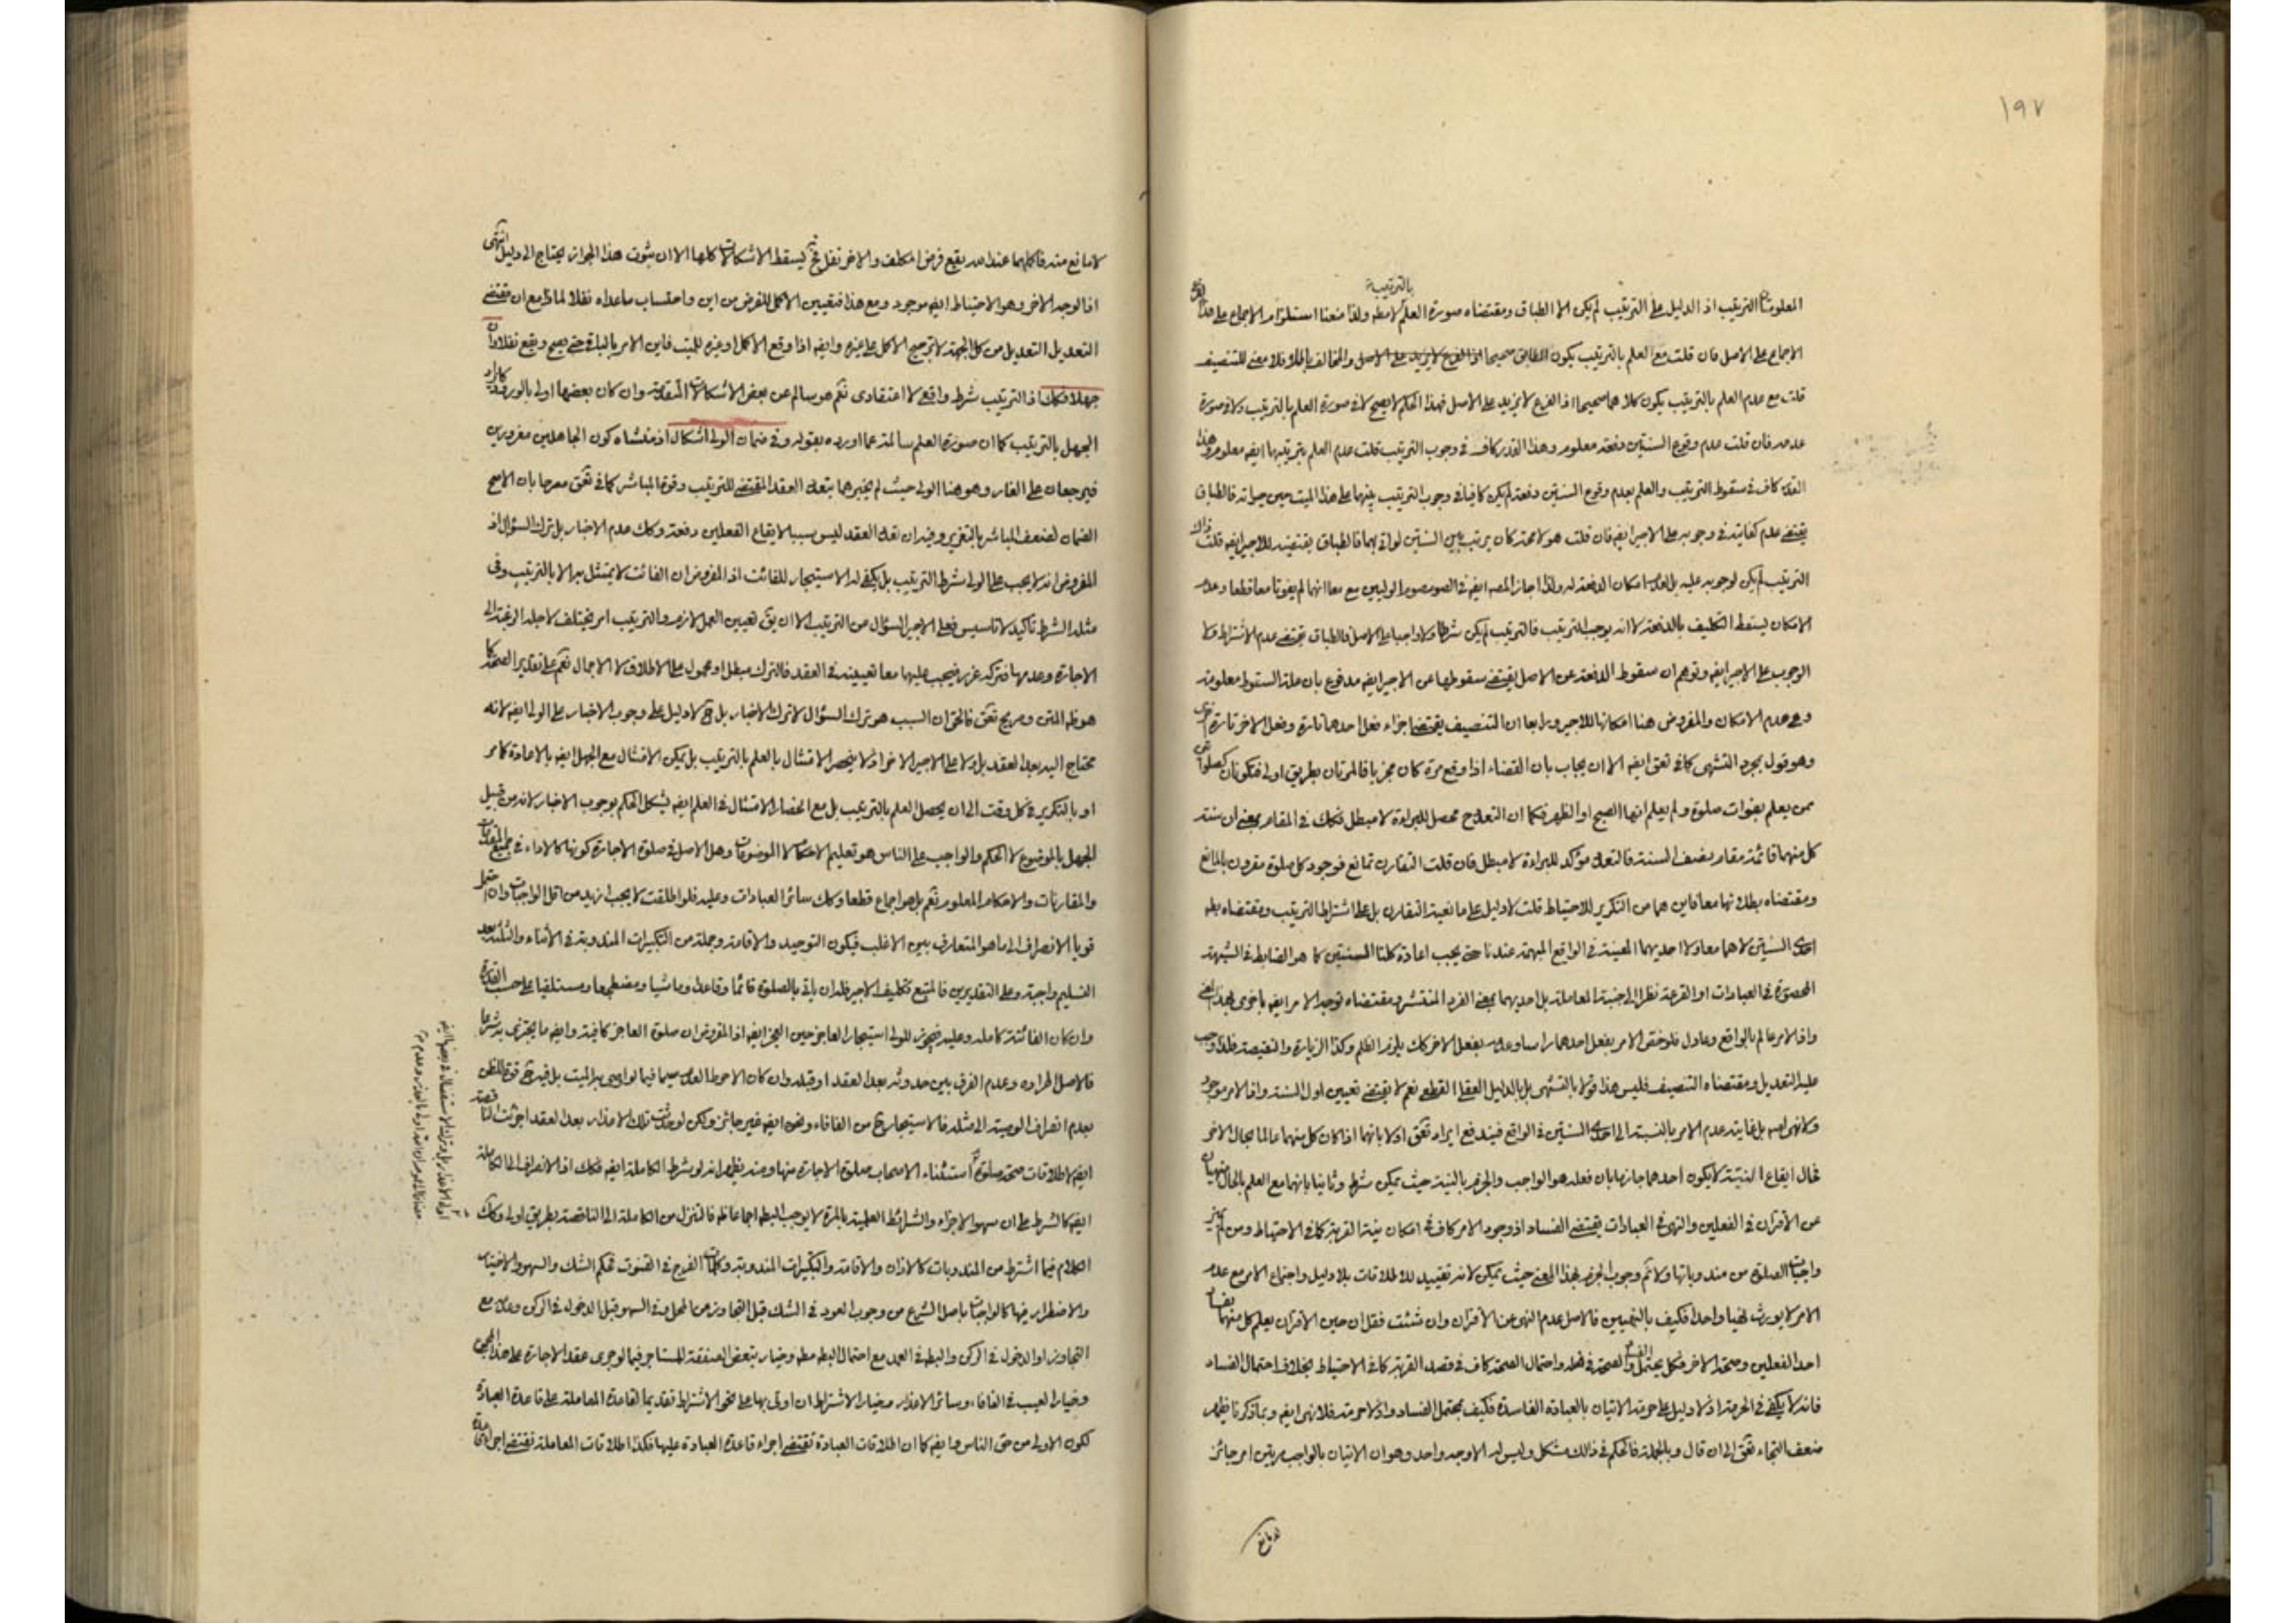 ١٩٧
بالترتيب
المعلومتا الترتيب اذ الدليل على الترتيب لم يكن الا الطباق ومقتضاه صورة العلم لا مطه ولذا منعنا استلزام الاجماع على هذا
الاجماع على الاصل فان قلت مع العلم بالترتيب يكون الطابق صحيحا اذ الفرع لا يزيد على الاصل والمخالف باطلا فلا معنى للتنصيف
قلت مع عدم العلم بالترتيب يكون كلاهما صحيحا اذ الفرع لا يزيد على الاصل فهذا الحكم لا يصح لا في صورة العلم بالترتيب ولا في صورة
عدمه فان قلت عدم وقوع السنتين دفعة معلوم وهذا القدر كاف في وجوب الترتيب قلت عدم العلم بترتيبها ايضه معلوم وهذا
القدر كاف في سقوط الترتيب والعلم بعدم وقوع السنتين دفعة لم يكن كافيا في وجوب الترتيب بينهما على هذا الميت حين حياته فالطباق
يقتضي عدم كفايته في وجوبه على الاجير ايضه فان قلت هو لا محة كان يرتب بين السنتين لو اتى بهما فالطباق يقتضيه للاجير ايضه قلت ذاك
الترتيب لم يكن لوجوبه عليه بل لعدم امكان الدفعة له ولذا اجاز المصه ايضه في الصوم صوم الوليين مع معا انهما لم يفوتا معا قطعا وعدم
الامكان يسقط التكليف بالدفعة لا انه يوجب الترتيب فالترتيب لم يكن شرطا ولا واجبا على الاصل فالطباق يقتضي عدم الاشتراط ولا
الوجوب على الاجير ايضه وتوهم ان سقوط الدفعة عن الاصل يقتضي سقوطها عن الاجير ايضه مدفوع بان علة السقوط معلومة
وهي عدم الامكان والمفروض هنا امكانها للاجير ورابعا ان التنصيف يقتضي اجزاء فعل احدهما تارة وفعل الاخر تارة اخرى
وهو قول بمجرد التشهي كما في تعق ايضه الا ان يجاب بان القضاء اذا وقع مرة كان مجزيا فالمرتان بطريق اولى فتكونان كصلوات
ممن يعلم بفوات صلوة ولم يعلم انها الصبح او الظهر فكما ان التعدد ح محصل للبراءة لا مبطل فكك في المقام بمعنى ان سنة
كل منهما قائمة مقام نصف السنة فالتعدد مؤكد للبراءة لا مبطل فان قلت التقارن تمانع فوجود كل صلوة مقرون بالمانع
ومقتضاه بطلانها معا فاين هما من التكرير للاحتياط قلت لا دليل على مانعية التقارن بل على اشتراط الترتيب ومقتضاه بطه
احدى السنتين لا هما معا ولا احديهما المعينة في الواقع المبهمة عندنا حتى يجب اعادة كلتا السنتين كما هو الضابط في الشبهة
المحصورة في العبادات او القرعة نظرا الى جنبة المعاملة بل احديهما بمعنى الفرد المنتشر ومقتضاه توجه الامر ايضه باخرى بهذا المعنى
واذ الامر عالم بالواقع وعادل فلو خص الامر بفعل احدهما راسا وعدم بفعل الاخر كك يلزم الظلم وكذا الزيادة والنقيصة فلذا وجب
عليه التعديل ومقتضاه التنصيف فليس هذا قولا بالتشهي بل بالدليل العقلي القطعي نعم لا يقتضي تعيين اول السنة واذ الامر موجود
ولا نهي ايضه بل غايته عدم الامر بالنسبة الى احدى السنتين في الواقع فيندفع ايراد تعق اولا بانهما اذا كان كل منهما عالما بحال الاخر
حال ايقاع النية لا يكون احدهما جازما بان فعله هو الواجب والجزم بالنية حيث يمكن شرط وثانيا بانهما مع العلم بالحال منهيان
عن الاقتران في الفعلين والنهي في العبادات يقتضي الفساد اذ وجود الامر كاف في امكان نية القربة كما في الاحتياط ومن ثم يميز
واجبات الصلوة من مندوباتها ولا ثم وجوب الجزم بهذا المعنى حيث يمكن لانه تقييد للاطلاقات بلا دليل واجتماع الامر مع عدم
الامر لا يورث نهيا واحدا فكيف بالنهيين فالاصل عدم النهي عن الاقتران وان شئت فقل ان حين الاقتران يعلم كل منهما بفساد
احد الفعلين وصحة الاخر فكل يحتمل الفساد والصحة في فعله واحتمال الصحة كاف في قصد القربة كما في الاحتياط بخلاف احتمال الفساد
فانه لا يكفي في الحرمة اذ لا دليل على حرمة الاتيان بالعبادة الفاسدة فكيف بمحتمل الفساد واذ لا حرمة فلا نهي ايضه وبما ذكرنا يظهر
ضعف التجاء تعق الى ان قال وبالجملة فالحكم في ذلك مشكل وليس له الا وجه واحد وهو ان الاتيان بالواجب مرتين امر جائز
لا مانع
لا مانع منه فاكملهما عند الله يقع فرض المكلف والاخر نفل فح يسقط الاشكالات كلها الا ان ثبوت هذا الجواز يحتاج الى دليل انتهى
اذ الوجه الاخر وهو الاحتياط ايضه موجود ومع هذا فتعيين الاكمل للفرض من اين واحتساب ما عداه نفلا لماذا مع ان مقتضى
التعديل التعديل من كل الجهة لا ترجيح الاكمل على غيره وايضه اذا وقع الاكمل او غيره للميت فاين الامر بالباقي حتى يصح ويقع نفلا وان
جهلا فكك اذ الترتيب شرط واقعي لا اعتقادي نعم هو سالم عن بعض الاشكالات المتقدمة وان كان بعضها اولى بالورود كايراد
الجهل بالترتيب كما ان صورة العلم سالمة عما اورده بقوله وفي ضمان الولي اشكال اذ منشاه كون الجاهلين مغرورين
فيرجعان على الغار وهو هنا الولي حيث لم يخبرهما بتعدد العقد المقتضي للترتيب وقوة المباشر كما في تعق معرجا بان الاصح
الضمان لضعف المباشر بالتغرير وفيه ان تعدد العقد ليس سببا لايقاع الفعلين دفعة وكك عدم الاخبار بل ترك السؤال اذ
المفروض انه لا يجب على الولي شرط الترتيب بل يكفي له الاستيجار للفائت اذ المفروض ان الفائت لا يمتثل به الا بالترتيب وفي
مثله الشرط تاكيد لا تاسيس فعلى الاجير السؤال من الترتيب الا ان يق تعيين العمل لازم والترتيب امر يختلف لاجله الرغبة الى
الاجارة وعدمها فتركه غرر فيجب عليهما معا تعيينه في العقد فالترك مبطل او محمول على الاطلاق لا الاجمال نعم على تقدير الصحة كما
هو ظه المتن وصريح تعق فالحق ان السبب هو ترك السؤال لا ترك الاخبار بل ح لا دليل على وجوب الاخبار على الولي ايضه لانه
محتاج اليه بعد العقد بل ولا على الاجير الاخر اذ لا ينحصر الامتثال بالعلم بالترتيب بل يمكن الامتثال مع الجهل ايضه بالاعادة كما مر
او بالتكرير في كل وقت الى ان يحصل العلم بالترتيب بل مع انحصار الامتثال في العلم ايضه يشكل الحكم بوجوب الاخبار لانه من قبيل
الجهل بالموضوع لا الحكم والواجب على الناس هو تعليم الاحكام لا الموضوعات وهل الاصل في صلوة الاجارة كونها كالاداء في جميع المقدمات
والمقارنات والاحكام المعلوم نعم بل هو اجماع قطعا وكك سائر العبادات وعليه فلو اطلقت لا يجب ازيد من اقل الواجبات وان احتمل
قويا الانصراف الى ما هو المتعارف بين الاغلب فيكون التوحيد والاقامة وجملة من التكبيرات المندوبة في الاثناء والثلثة بعد
التسليم واجبة وعلى التقديرين فالمتبع تكليف الاجير فله ان ياتي بالصلوة قائما وقاعدا وماشيا ومضطجعا ومستلقيا على حسب القدرة
وان كان الفائتة كاملة وعليه فيجوز للولي استيجار العاجز حين العجز ايضه اذ المفروض ان صلوة العاجز كافية وايضه ما يجتزى به شرعا
فالاصل اطراده وعدم الفرق بين حدوثه بعد العقد او قبله وان كان الاحوط العدم سيما فيما لو اوصى به الميت بل فيه ح قوة للظن
بعدم انصراف الوصية الى مثله فالاستيجار ح من الفاقاء ونحوه ايضه غير جائز ولكن لو حدثت تلك الاعذار بعد العقد اجزئت الناقصة
ايضه لاطلاقات صحة صلوة استثناء الاصحاب صلوة الاجارة منها ومنه يظهر انه لو شرط الكاملة ايضه فكك اذ الانصراف الى الكاملة
ايضه كالشرط على ان سهو الاجزاء والشرائط العلمية بالمرة لا يوجب البطه اجماعا ظه فالتنزل من الكاملة الى الناقصة بطريق اولى وكك
الكلام فيما اشترط من المندوبات كالاذان والاقامة والتكبيرات المندوبة وكلمات الفرج في القنوت فحكم الشك والسهو والاختيار
والاضطرار فيها كالواجبات باصل الشرع من وجوب العود في الشك قبل التجاوز من المحل وفي السهو قبل الدخول في الركن وعدمه مع
التجاوز او الدخول في الركن والبطه في العمد مع احتمال البطه مطه وخيار تبعض الصفقة للمستاجر فيما لو جرى عقد الاجارة على هذا المجموع
وخيار العيب في الفاقاء وسائر الاعذار وخيار الاشتراط ان اوتى بها على نحو الاشتراط تقديما لقاعدة المعاملة على قاعدة العبادة
لكون الاولى من حق الناس وايضه كما ان اطلاقات العبادة تقتضي اجراء قاعدة العبادة عليها فكذا اطلاقات المعاملة تقتضي اجراء قاعدة